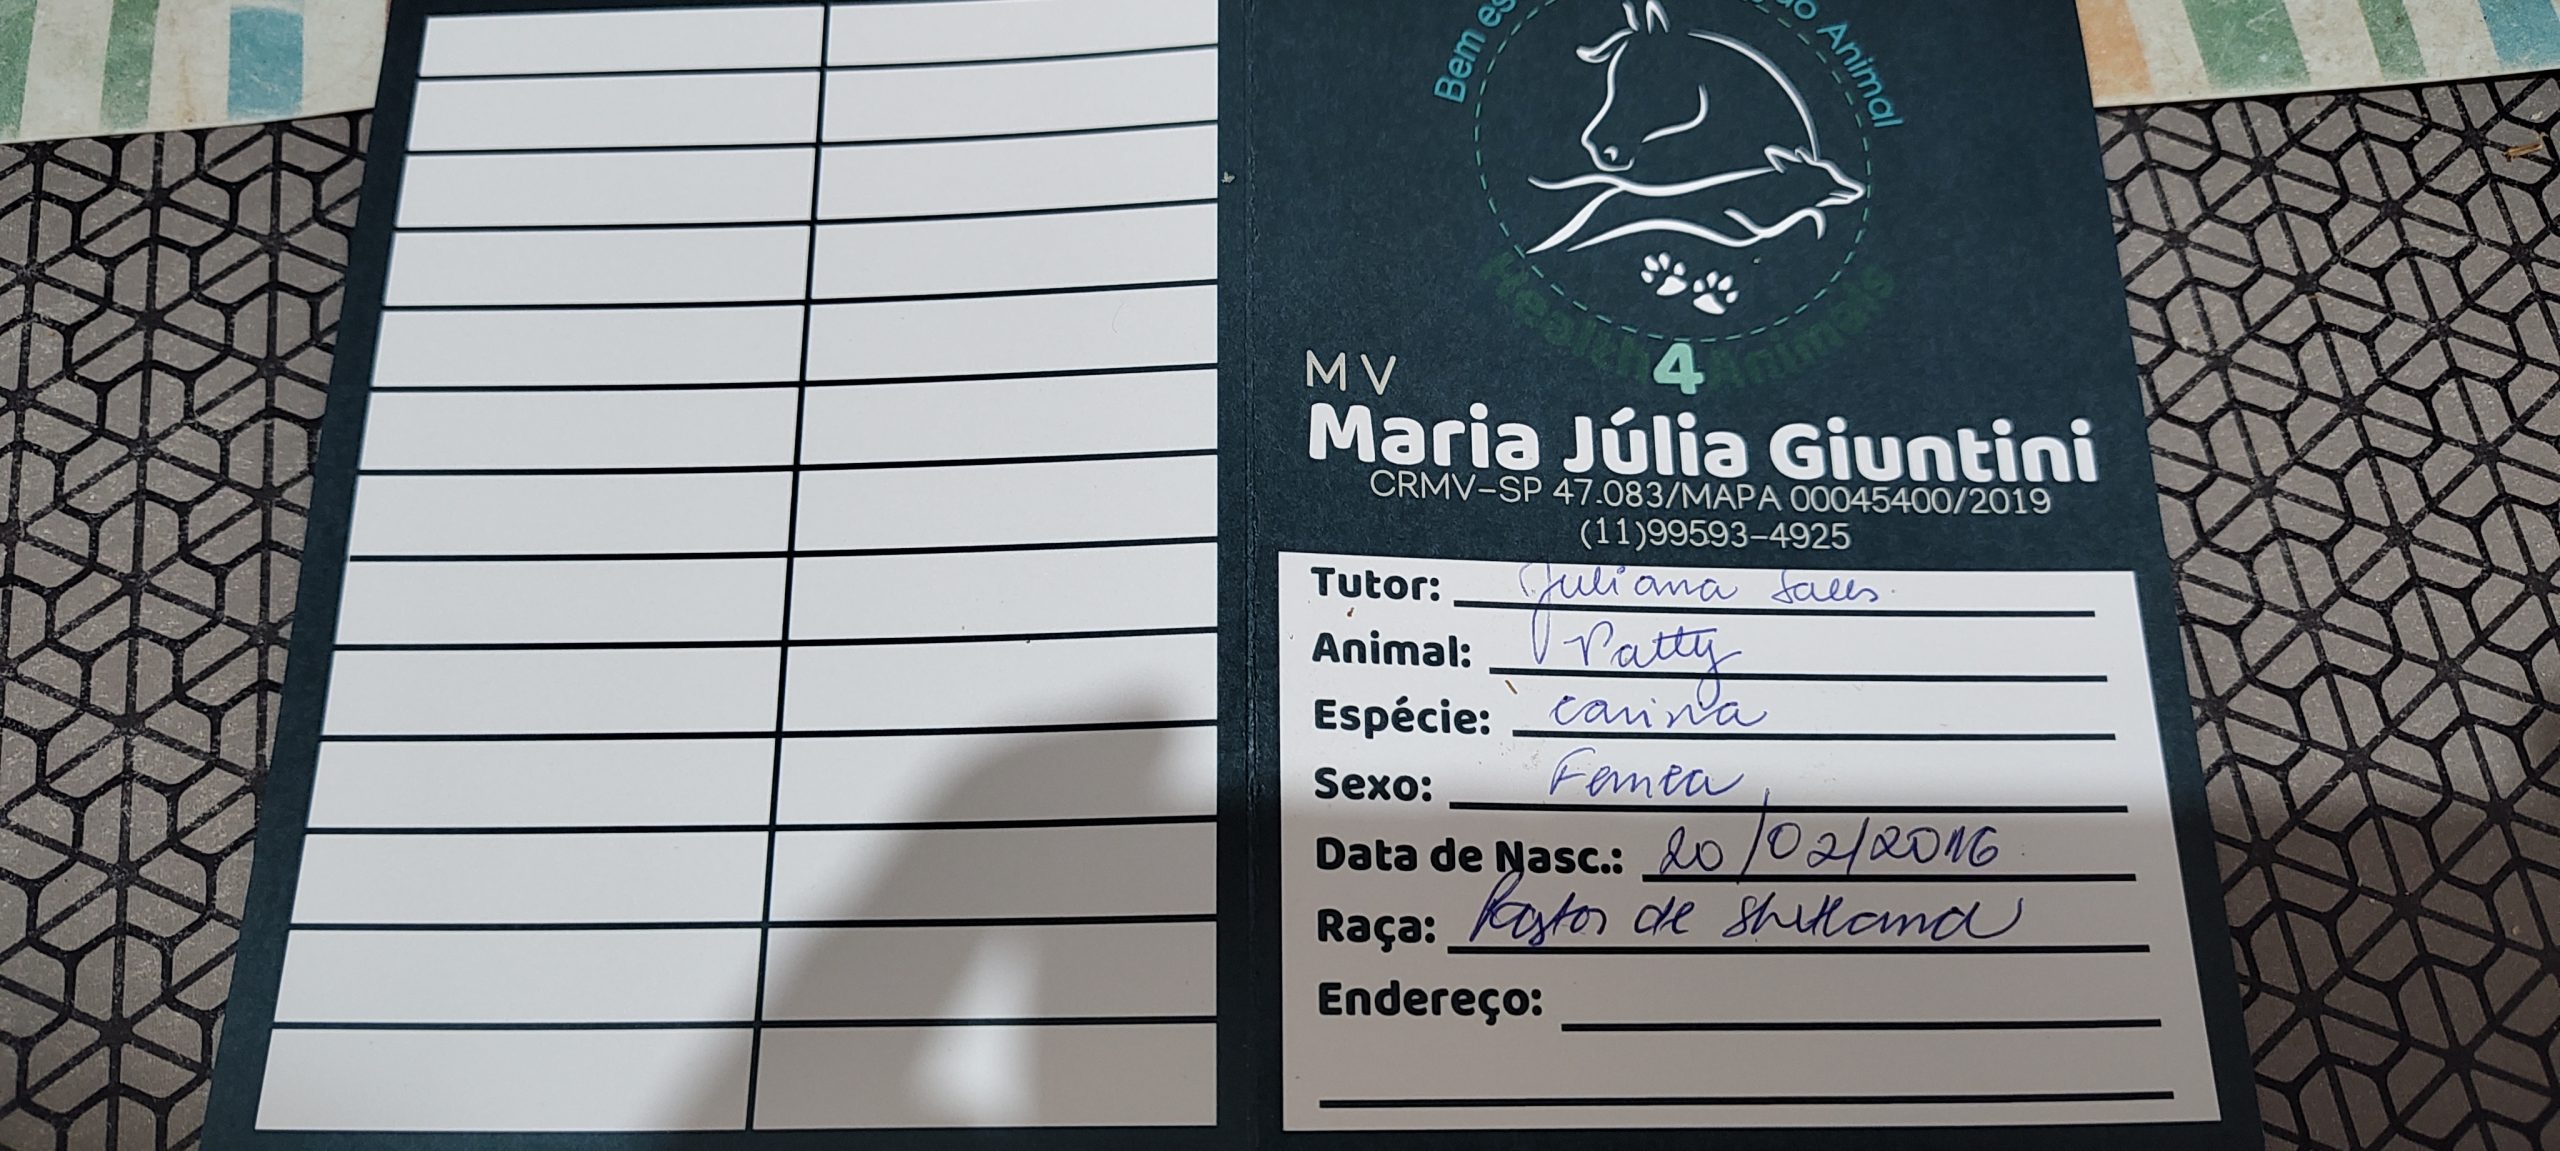 Bem es
do Animal
Health 4 Animais
MV
Maria Júlia Giuntini
CRMV-SP 47.083/MAPA 00045400/2019
(11)99593-4925
Tutor: Juliana Salles
Animal: Patty
Espécie: Canina
Sexo: Femea
Data de Nasc.: 20/02/2016
Raça: Pastor de Shetland
Endereço: